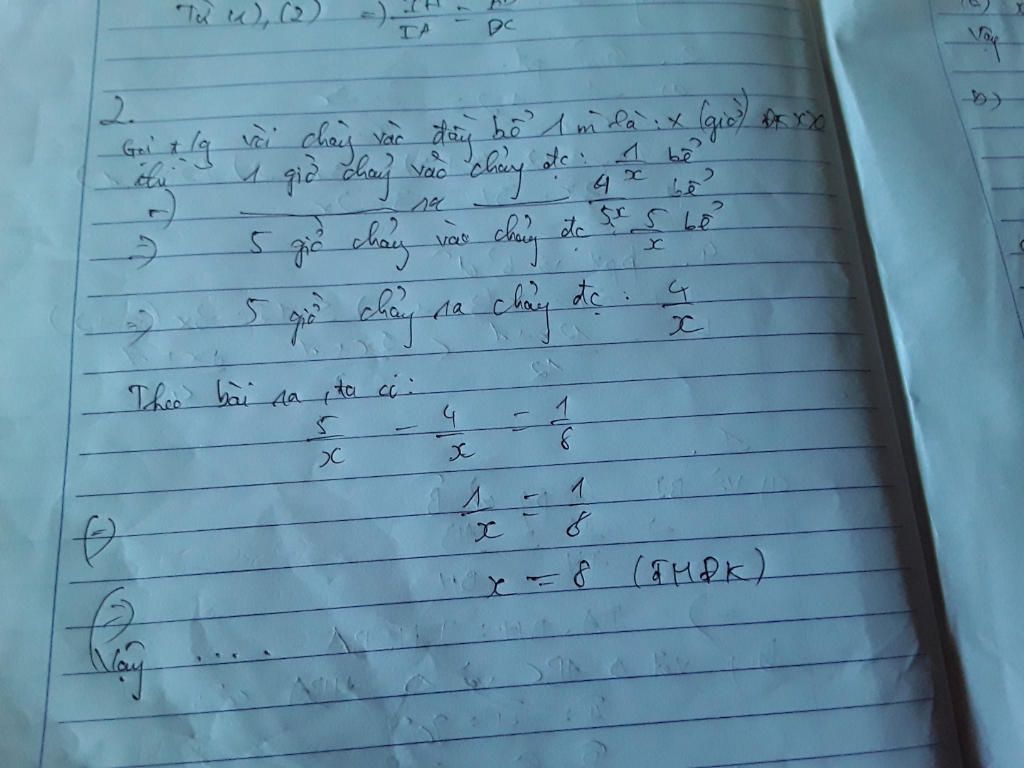 Từ (1), (2) =) IA = DC
2.
Gọi t/g vòi chảy vào đầy bể 1 mì là: x (giờ) ĐK x>0
thì 1 giờ chảy vào chảy đc: 1/x bể
=) ra 4/5x bể
=) 5 giờ chảy vào chảy đc 5/x bể
=) 5 giờ chảy ra chảy đc: 4/x
Theo bài ra, ta có:
5/x - 4/x = 1/8
(=) 1/x = 1/8
(=) x = 8 (TMĐK)
Vậy ....
Vậy
b)